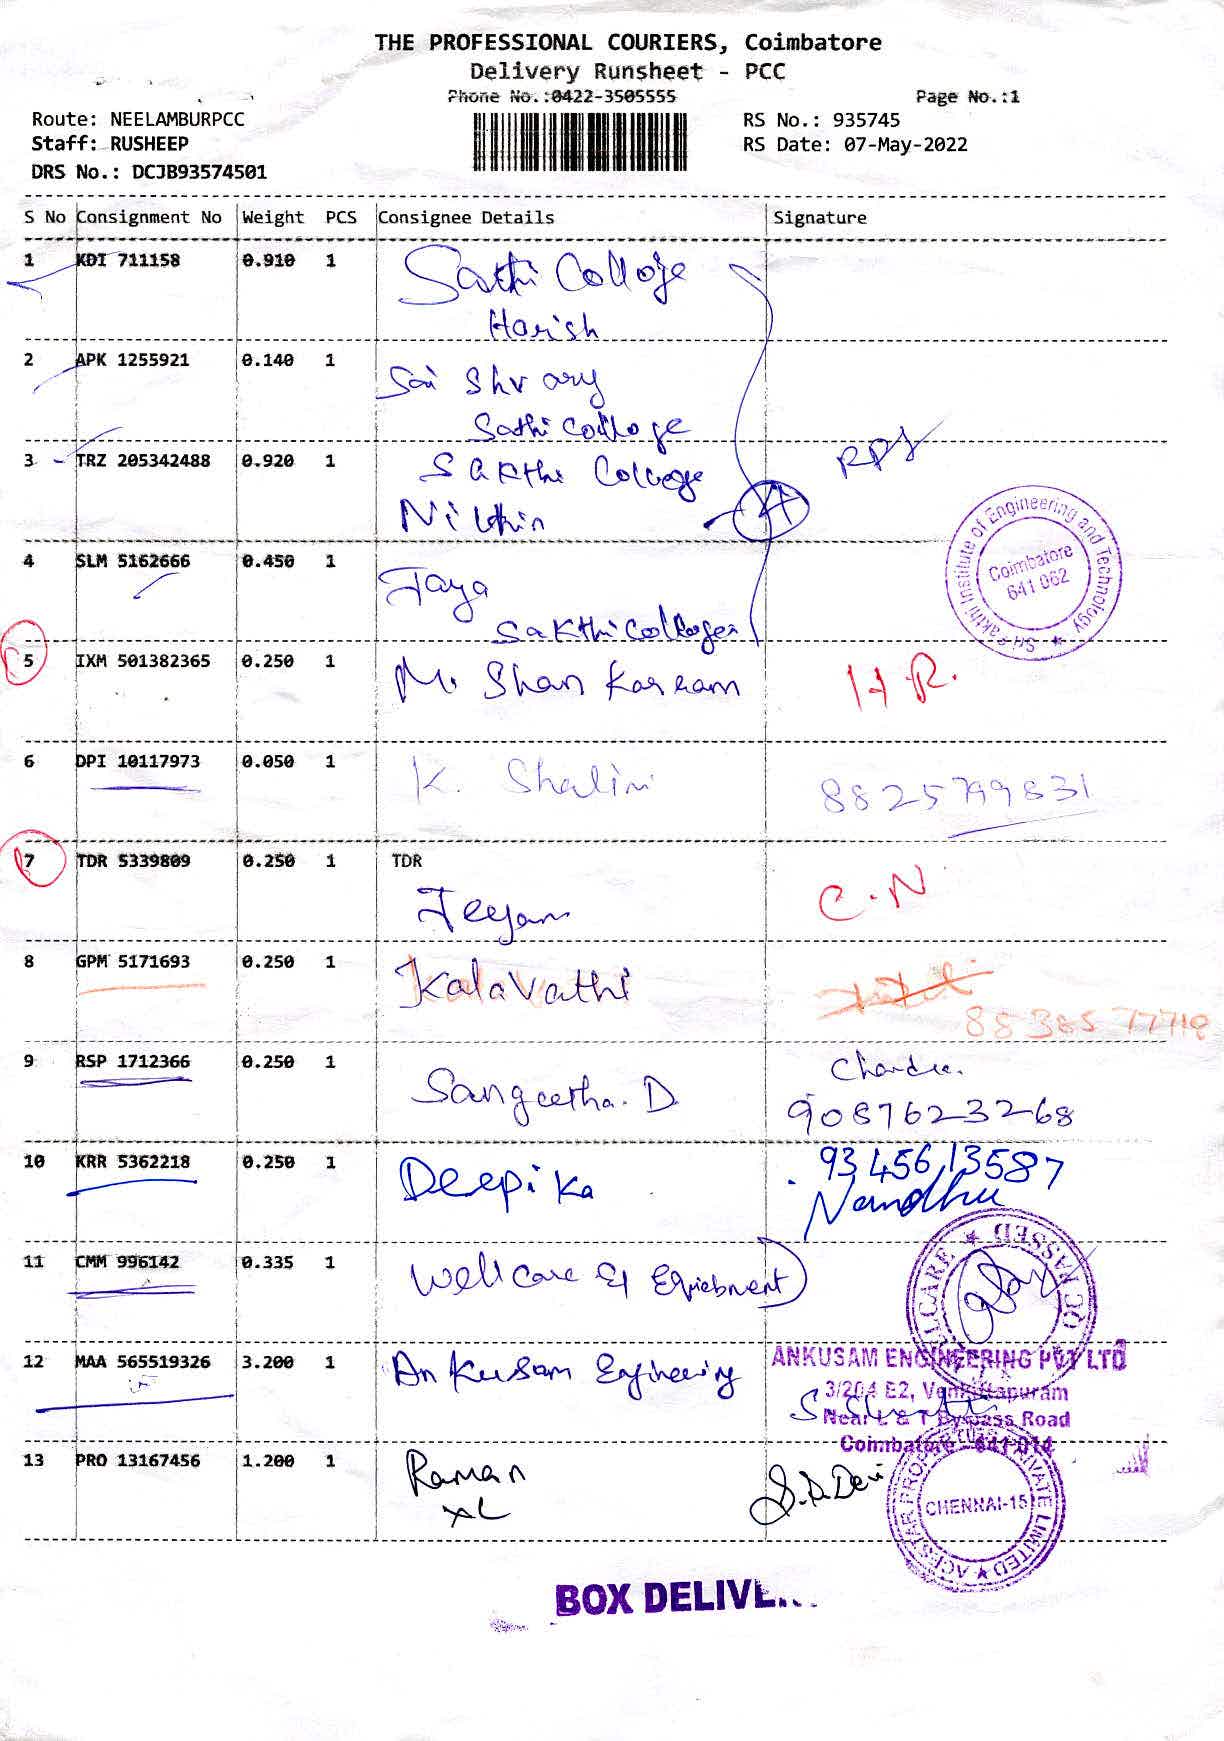 THE PROFESSIONAL COURIERS, Coimbatore
Delivery Runsheet - PCC
Phone No.:0422-3505555 Page No.:1
Route: NEELAMBURPCC RS No.: 935745
Staff: RUSHEEP RS Date: 07-May-2022
DRS No.: DCJB93574501
S No Consignment No Weight PCS Consignee Details Signature
1 KDI 711158 0.910 1 Sathi College
Harish
2 APK 1255921 0.140 1
Sai
Sathi College
3 TRZ 205342488 0.920 1 Sakthi College
Nithin
Sri Sakthi Institute of Engineering and Technology
Coimbatore
641 062
4 SLM 5162666 0.450 1
Jaya
Sakthi College
5 IXM 501382365 0.250 1 M. Shan Karram H.R.
6 DPI 10117973 0.050 1 K. Shalini 8825799831
7 TDR 5339809 0.250 1 TDR
Jeyam C.N
8 GPM 5171693 0.250 1 Kalavathi
8838577718
9 RSP 1712366 0.250 1
Sangeetha. D
9087623268
10 KRR 5362218 0.250 1 Deepika 9345613587
Nandhu
11 CMM 996142 0.335 1 Wellcare
QC PASSED
12 MAA 565519326 3.200 1 Ankusam Engineering
ANKUSAM ENGINEERING PVT LTD
3/204 E2, Venkittapuram
Near L & T Bypass Road
Coimbatore - 641 014
13 PRO 13167456 1.200 1 Raman
XL
S.D.Devi
CHENNAI-15
BOX